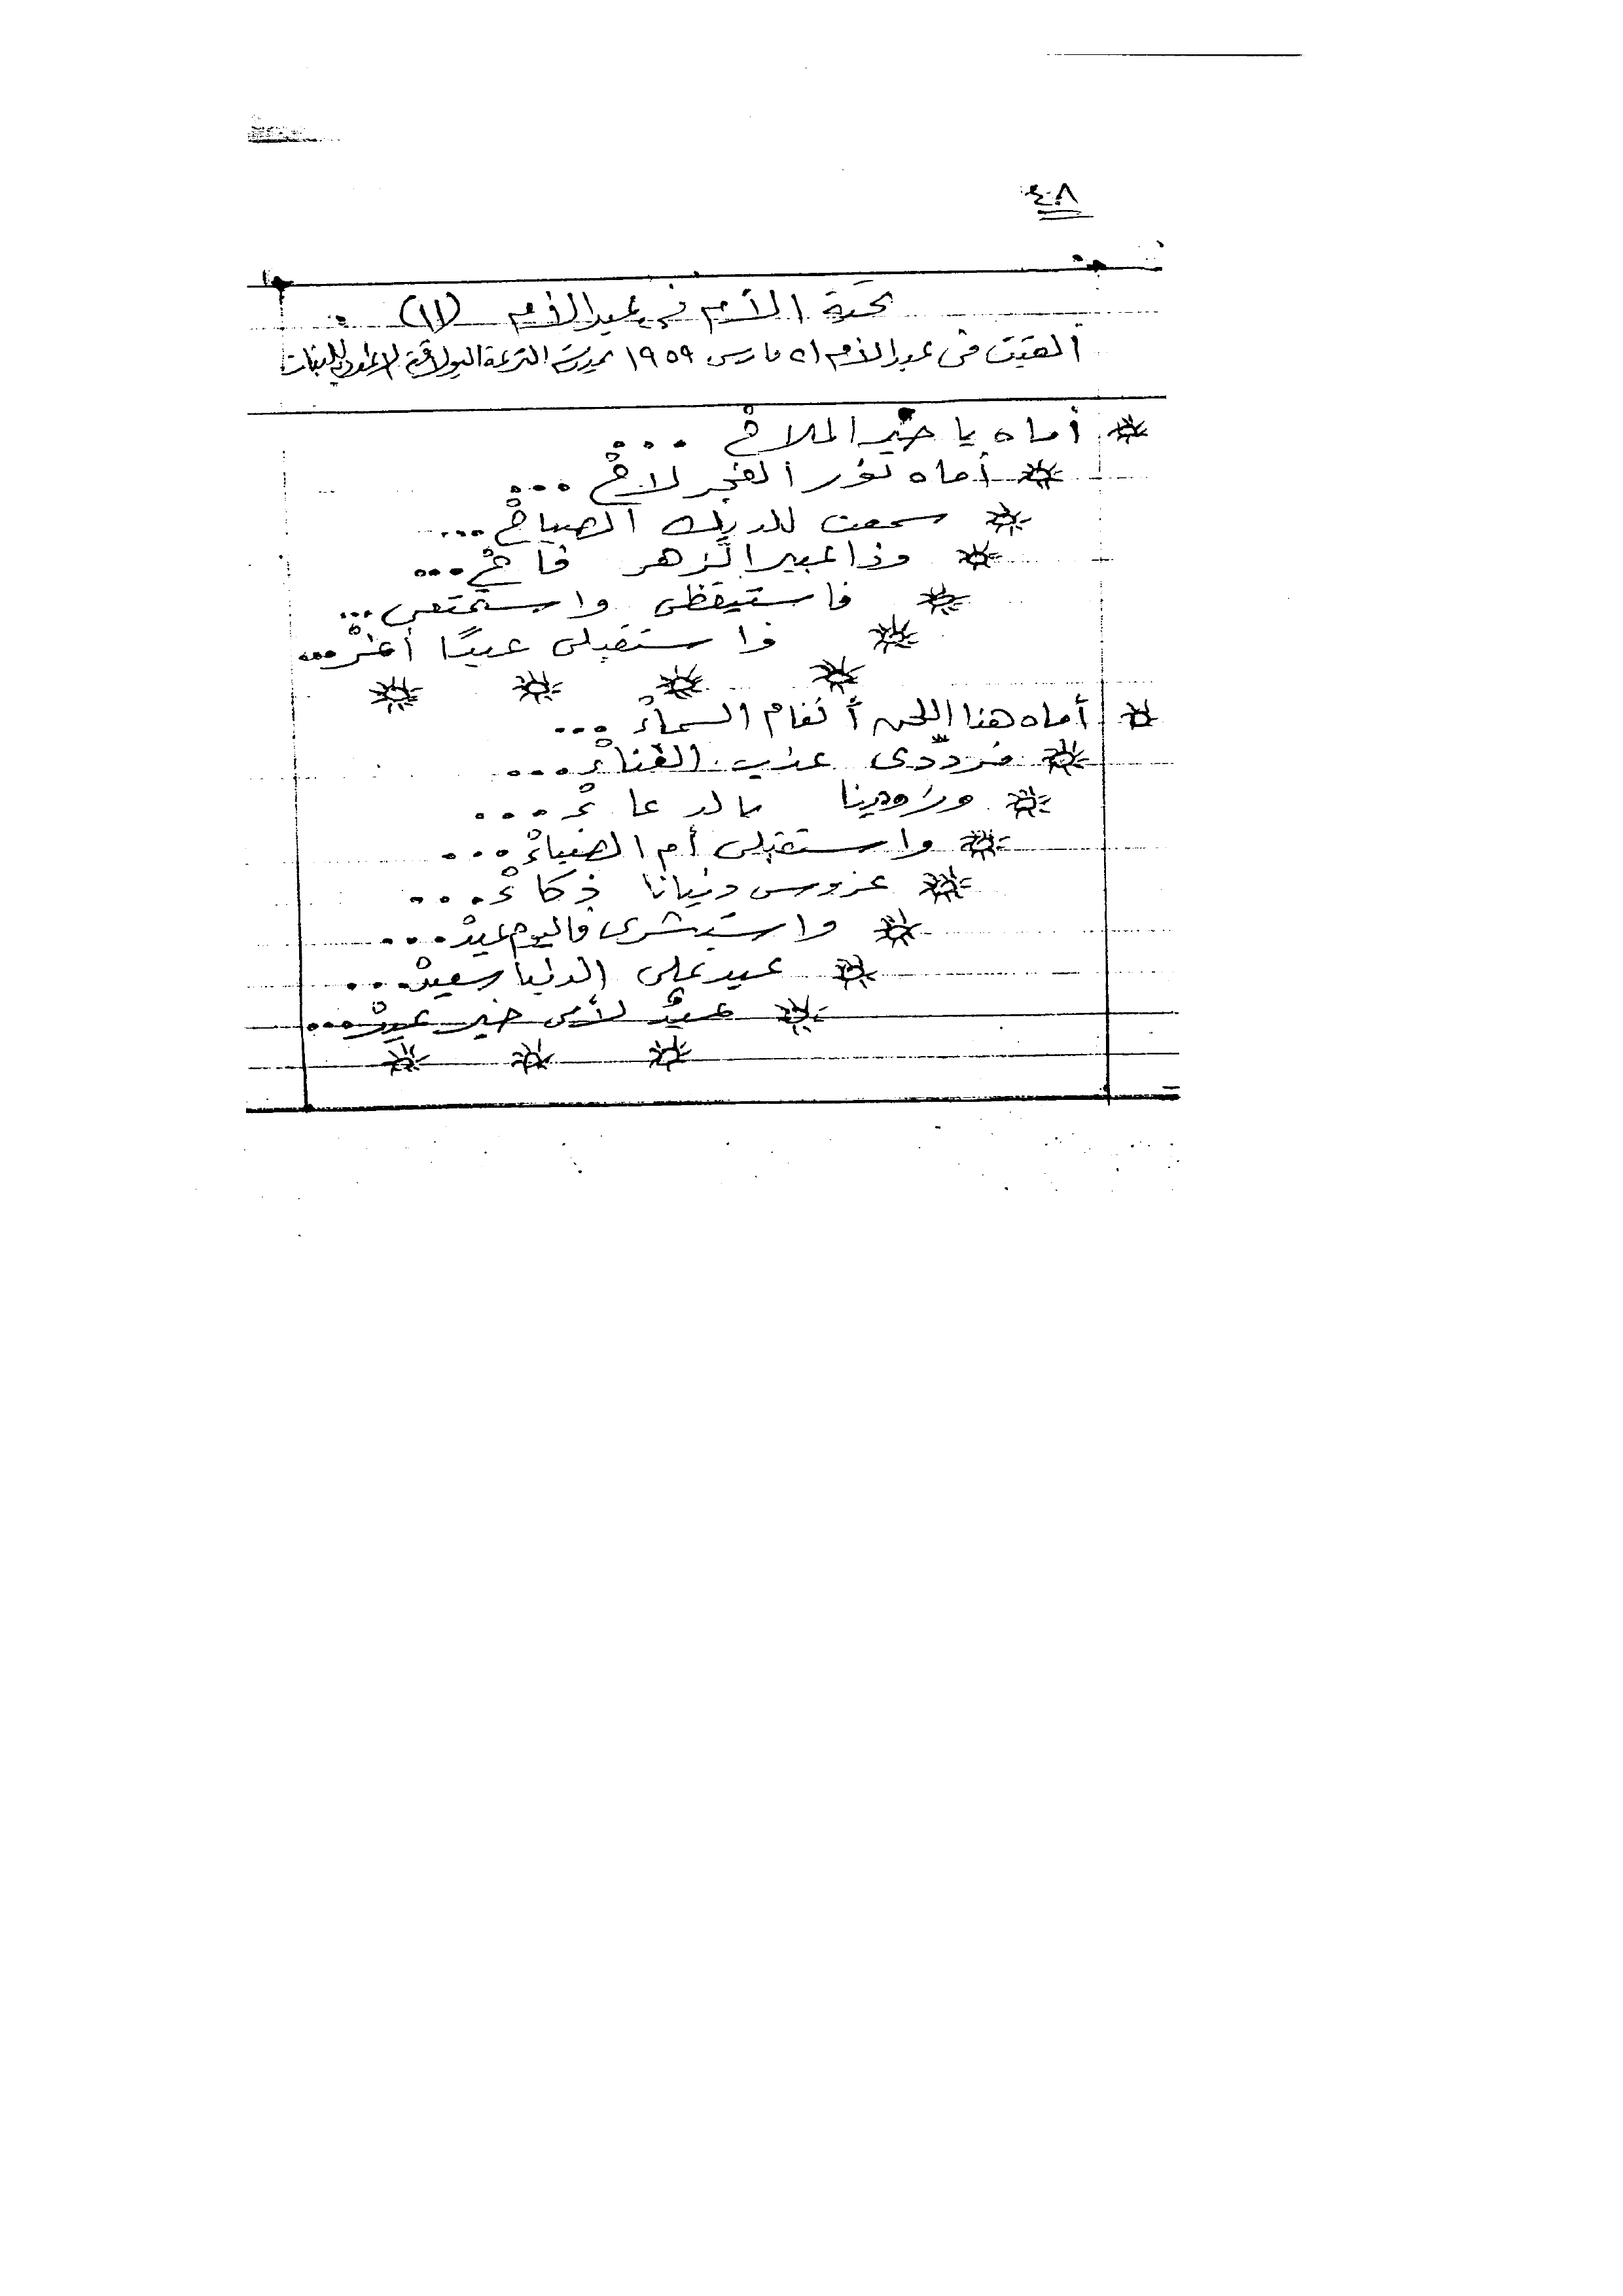 ٤٠٨
تحية الأم فى عيد الأم (١١)
ألقيت فى عيد الأم ٢١ مارس ١٩٥٩ بمدرسة الترعة البولاقية الإعدادية للبنات
أماه يا خير الملاحْ ...
أماه نور الفجر لاحْ ...
سمعت للديك الصياحْ ...
وذا عبير الزهر فاحْ ...
فاستيقظى واستمتعى ...
واستقبلى عيدًا أغرْ ...
أماه هذا اللحن أنغام السماءْ ...
فرددّى عذب الغناءْ ...
وزودينا بالدعاءْ ...
واستقبلى أم الضياءْ ...
عروس دنيانا ذكاءْ ...
واستبشرى فاليوم عيدْ ...
عيد على الدنيا سعيدْ ...
عيدٌ لأمى خير عيدْ ...